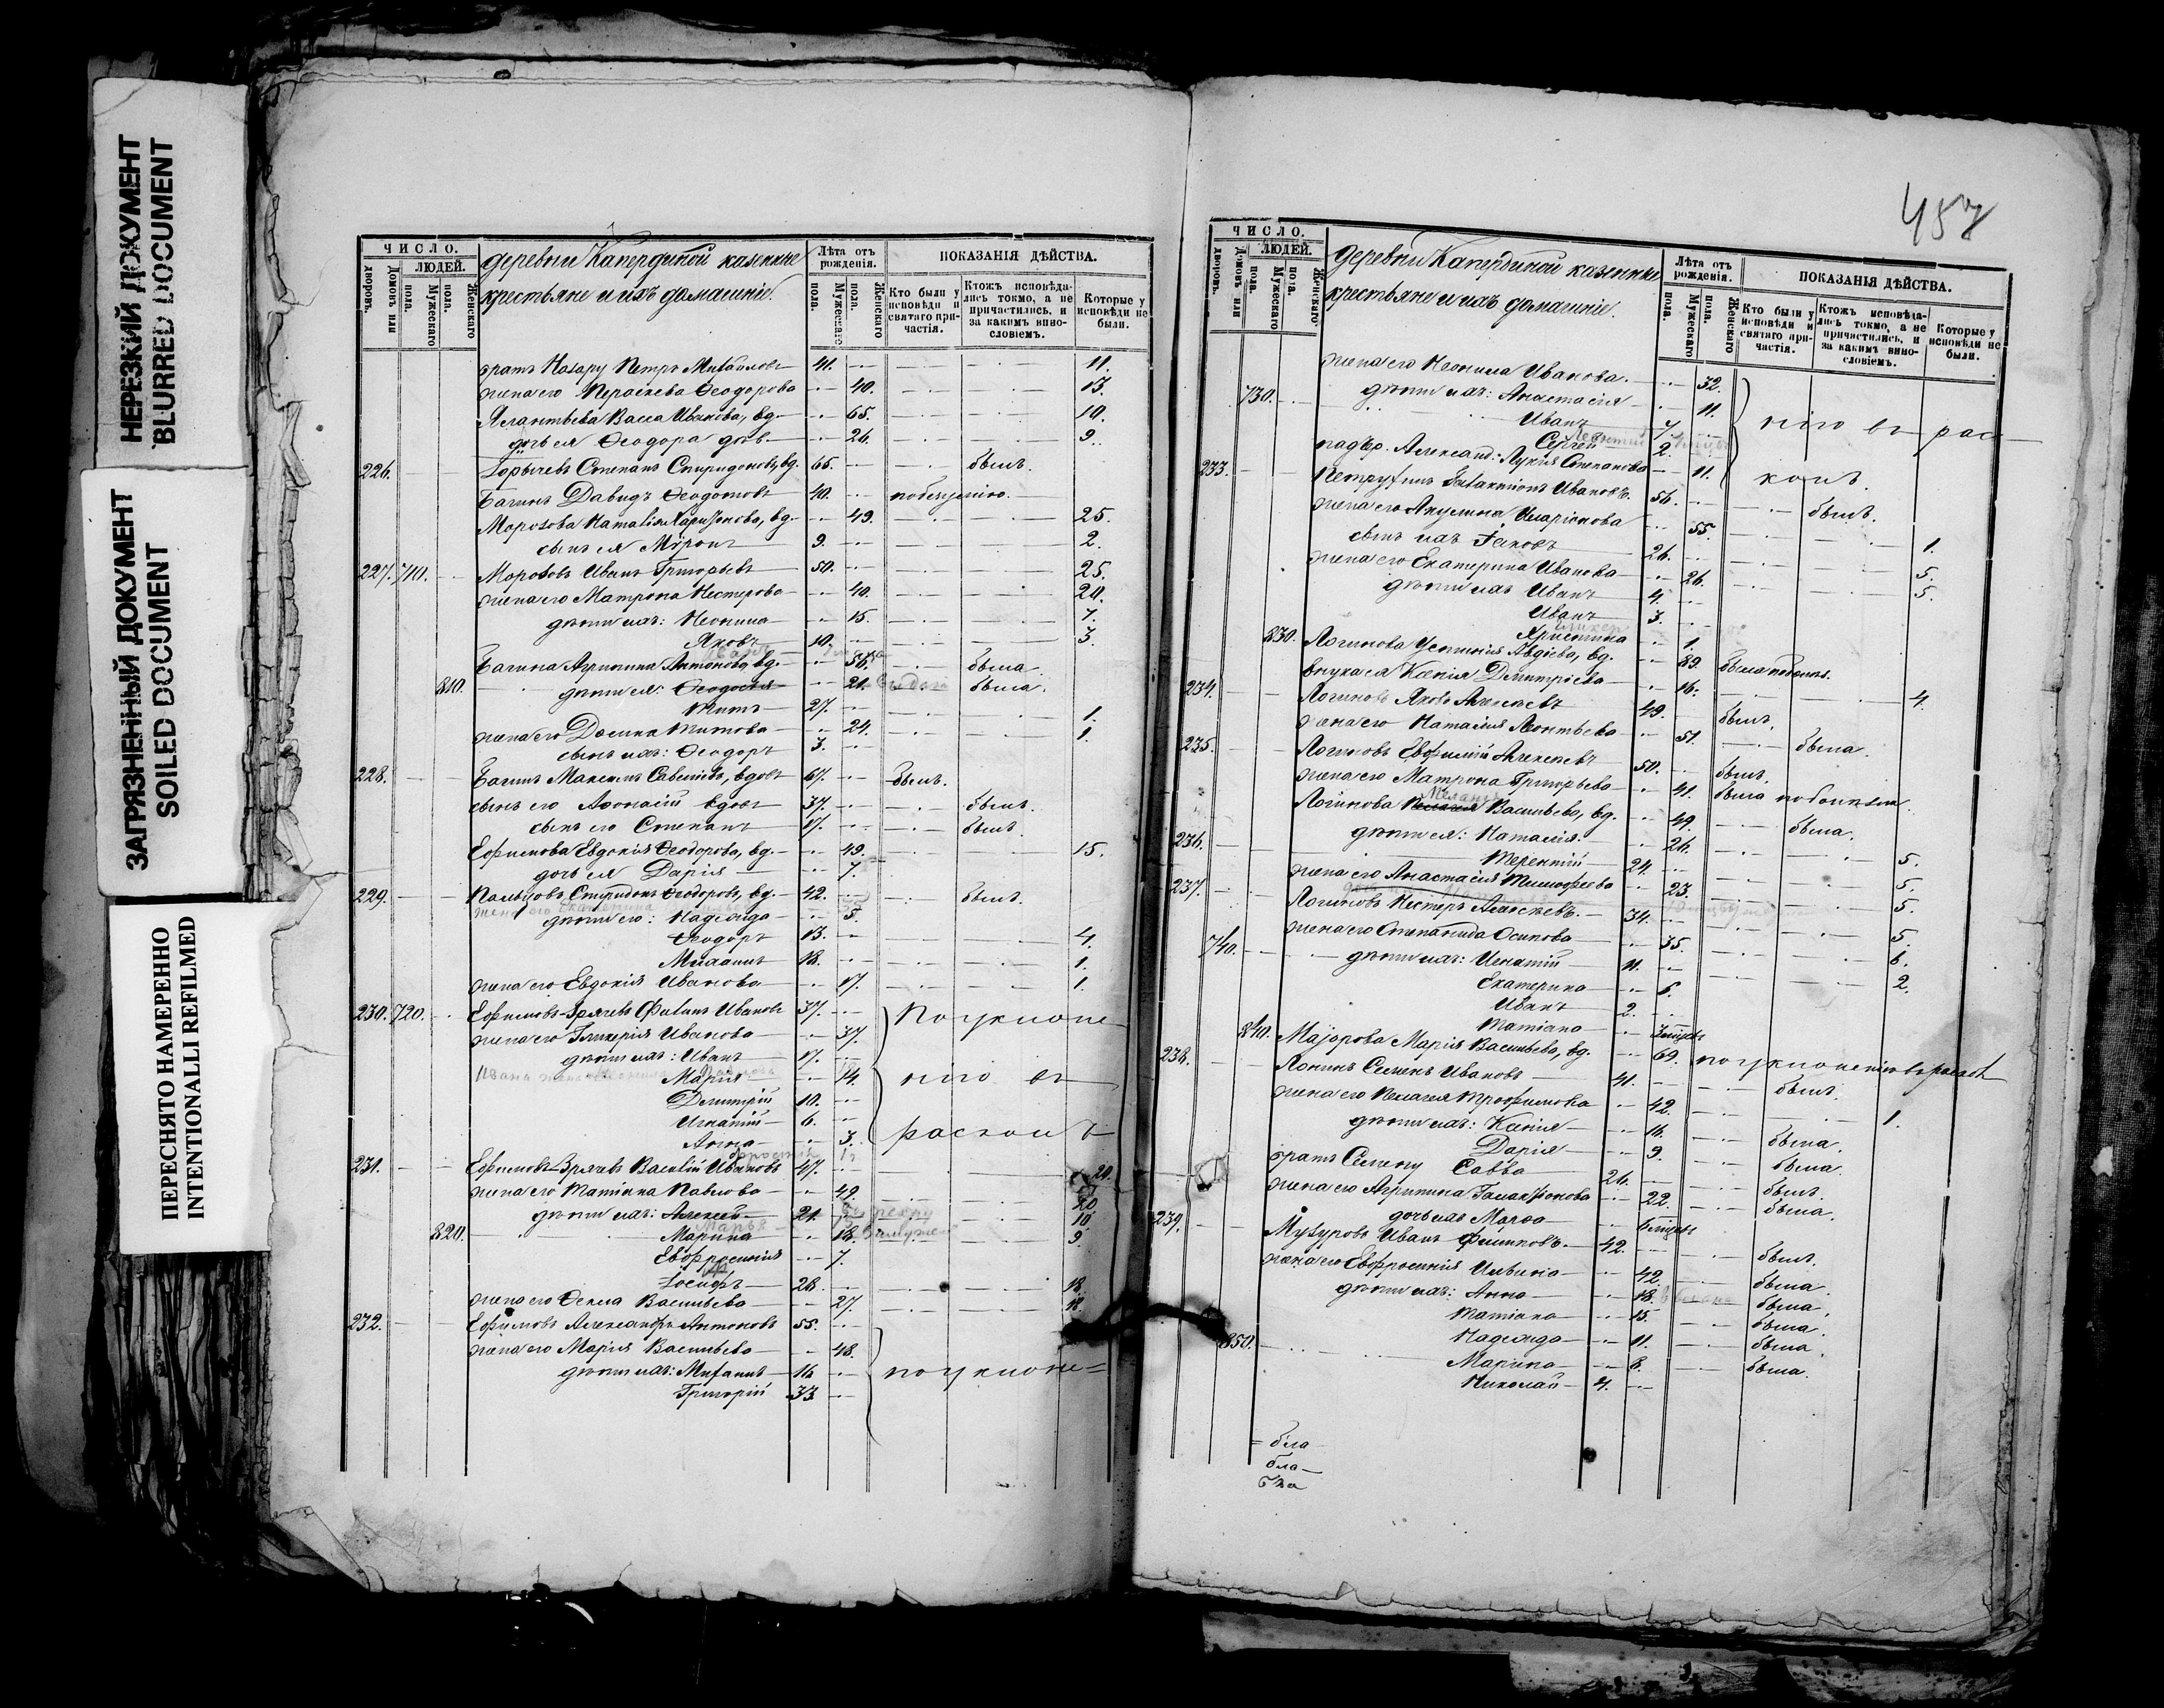 НЕРЕЗКИЙ ДОКУМЕНТ
BLURRED DOCUMENT
ЗАГРЯЗНЕННЫЙ ДОКУМЕНТ
SOILED DOCUMENT
ПЕРЕСНЯТО НАМЕРЕННО
INTENTIONALLI REFILMED
ЧИСЛО.
ЛЮДЕЙ.
Домовъ или дворовъ.
Мужескаго пола.
Женскаго пола.
деревни Капердиной казенные
крестьяне и ихъ домашніе.
Лѣта отъ рожденія.
Мужескаго пола.
Женскаго пола.
ПОКАЗАНІЯ ДѢЙСТВА.
Кто были у исповѣди и святаго причастія.
Ктожъ исповѣдались токмо, а не причастились, и за какимъ винословіемъ.
Которые у исповѣди не были.
братъ Назару Петръ Михайловъ 41. 11.
жена его Параскева Ѳеодорова 40. 13.
Васса Иванова, вд. 65. 10.
дочь ея Ѳеодора 26. 9.
226. Степанъ Спиридоновъ, вд. 65. былъ.
Багинъ Давидъ Ѳеодотовъ 40.
Морозова Наталія Харитонова, вд. 49. 25.
сынъ ея Мѵронъ 9. 2.
227. 710. Морозовъ Иванъ Григорьевъ 50. 25.
жена его Матрона Нестерова 40. 20.
дѣти ихъ: Неонила 15. 7.
Яковъ 10. 3.
Багина Агрипина Антонова, вд. 56. была
810. дѣти ея: Ѳеодосія 21. была.
Титъ 27. 1.
жена его Домна Титова 24. 1.
сынъ ихъ: Ѳеодоръ 3.
228. Багинъ Максимъ Савельевъ, вдовъ 67. былъ.
сынъ его Аѳонасій вдовъ 37. былъ.
сынъ его Степанъ 17. былъ.
Ефимова Евдокія Ѳеодорова, вд. 49. 15.
дочь ея Дарія 7.
229. Пальцовъ Спиридонъ Ѳеодоровъ, вд. 42. былъ.
жена его Екатерина
дѣти его: Надежда 5.
Ѳеодоръ 13. 4.
Михаилъ 18. 1.
жена его Евдокія Иванова 17. 1.
230. 720. Ефимовъ-Зрячевъ Фатинъ Ивановъ 37. По уклоне-
жена его Гликерія Иванова 37.
дѣти ихъ: Иванъ 17.
Марія 14. нію въ
Димитрій 10.
Игнатій 6.
Анна 3. расколъ
231. Ефимовъ-Зрячевъ Василій Ивановъ 47. 20.
жена его Татіана Павлова 49. 20.
дѣти ихъ: Алексей 21. 10.
820. Марина 18. 9.
Евфросинія 7.
Іосифъ 28. 18.
жена его Ѳекла Васильева 27. 18.
232. Ефимовъ Александръ Антоновъ 55.
жена его Марія Васильева 48.
дѣти ихъ: Михаилъ 16 по уклоне=
Григорій 33
457
ЧИСЛО.
ЛЮДЕЙ.
Домовъ или дворовъ.
Мужескаго пола.
Женскаго пола.
деревни Капердиной казенные
крестьяне и ихъ домашніе.
Лѣта отъ рожденія.
Мужескаго пола.
Женскаго пола.
ПОКАЗАНІЯ ДѢЙСТВА.
Кто были у исповѣди и святаго причастія.
Ктожъ исповѣдались токмо, а не причастились, и за какимъ винословіемъ.
Которые у исповѣди не были.
жена его Неонила Иванова. 32.
730. дѣти ихъ: Анастасія 11.
Иванъ 7. нію въ рас-
Сергей 2.
падчер. Александ: Лукія Степанова 11. колъ.
233. Петрухинъ Галактіонъ Ивановъ. 56. былъ.
жена его Акулина Иларіонова 55. 1.
сынъ ихъ Іаковъ 26. 5.
жена его Екатерина Иванова 26. 5.
дѣти ихъ Иванъ 4.
Иванъ 3.
Христина 1.
830. Логинова Устинія Авдіева, вд. 89.
внука ея Ксенія Димитріева 16. 4.
234. Логиновъ Яковъ Алексѣевъ 49. былъ.
жена его Наталія Леонтьева 51. была.
235. Логиновъ Евфимій Алексѣевъ 50. былъ.
жена его Матрона Григорьева 41.
Логинова Пелагея Васильева, вд. 49. была.
236. дѣти ея: Наталія. 26. 5.
Терентій 24. 5.
237. жена его Анастасія Тимофеева 23. 5.
Логиновъ Несторъ Алексѣевъ. 34. 5.
жена его Степанида Осипова 35. 6.
740. дѣти ихъ: Игнатій 11. 2.
Екатерина 6.
Иванъ 2.
Татіана
840. Маіорова Марія Васильева, вд. 69. по уклоненію въ расколъ
238. Лонинъ Семенъ Ивановъ 41. былъ.
жена его Пелагея Трофимова 42. 1.
дѣти ихъ: Ксенія 16. была.
Дарія 9. была
братъ Семену Савва 26. былъ.
жена его Агрипина Галактіонова 22. была.
дочь ихъ Марѳа
239. Музуровъ Иванъ Филиповъ. 42. былъ.
жена его Евфросинія Ильина 42. была.
дѣти ихъ: Анна 18. была.
Татіана 15. была.
850. Надежда 11. была.
Марина 8. была.
Николай 4.